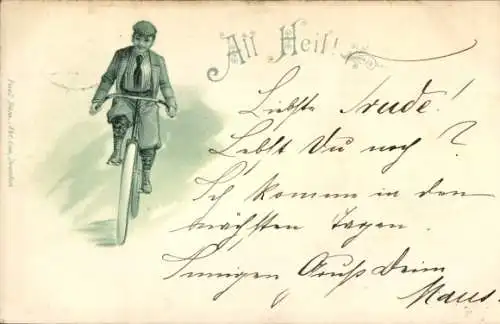 All Heil!
Liebste Trude!
Lebst Du noch?
Ich komme in den
nächsten Tagen.
Innigen Gruß Deine
Maus.